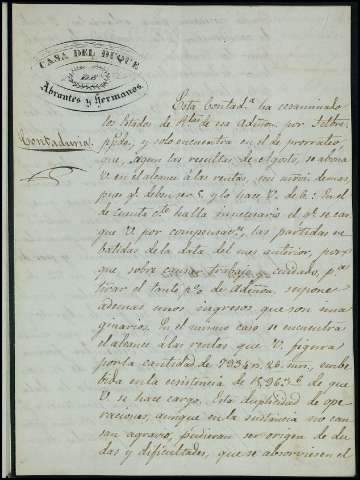 CASA DEL DUQUE
DE
Abrantes y Hermanos.
Contaduría.
Esta Contad.ª ha ecsaminado
los Estados de de esa Admon por Febr.º
pp.do, y solo encuentra en el de prorrateo
que, segun las resultas de Agosto, se abona
V. en el alcance á las rentas, un mrvn. de mas,
pues q.e deben ser 5 y lo hace V. de 6: En el
de cuenta cte halla innecesario el q.e se car
gue V. por compensac.n, las partidas re
batidas de la data del mes anterior, por
que, sobre causar trabajo y cuidado, p.ª
tirar el tanto p.% de Admon, supone
ademas unos ingresos que son ima
ginarios. En el mismo caso se encuentra
el alcance á las rentas que V. figura
por la cantidad de 7934 r. 26 mrs, embe
bida en la ecsistencia de 15,963 de que
V. se hace cargo. Esta duplicidad de ope
raciones, aunque en la sustancia no cau
san agravio, pudieran ser origen de du
das y dificultades, que se absorviesen el